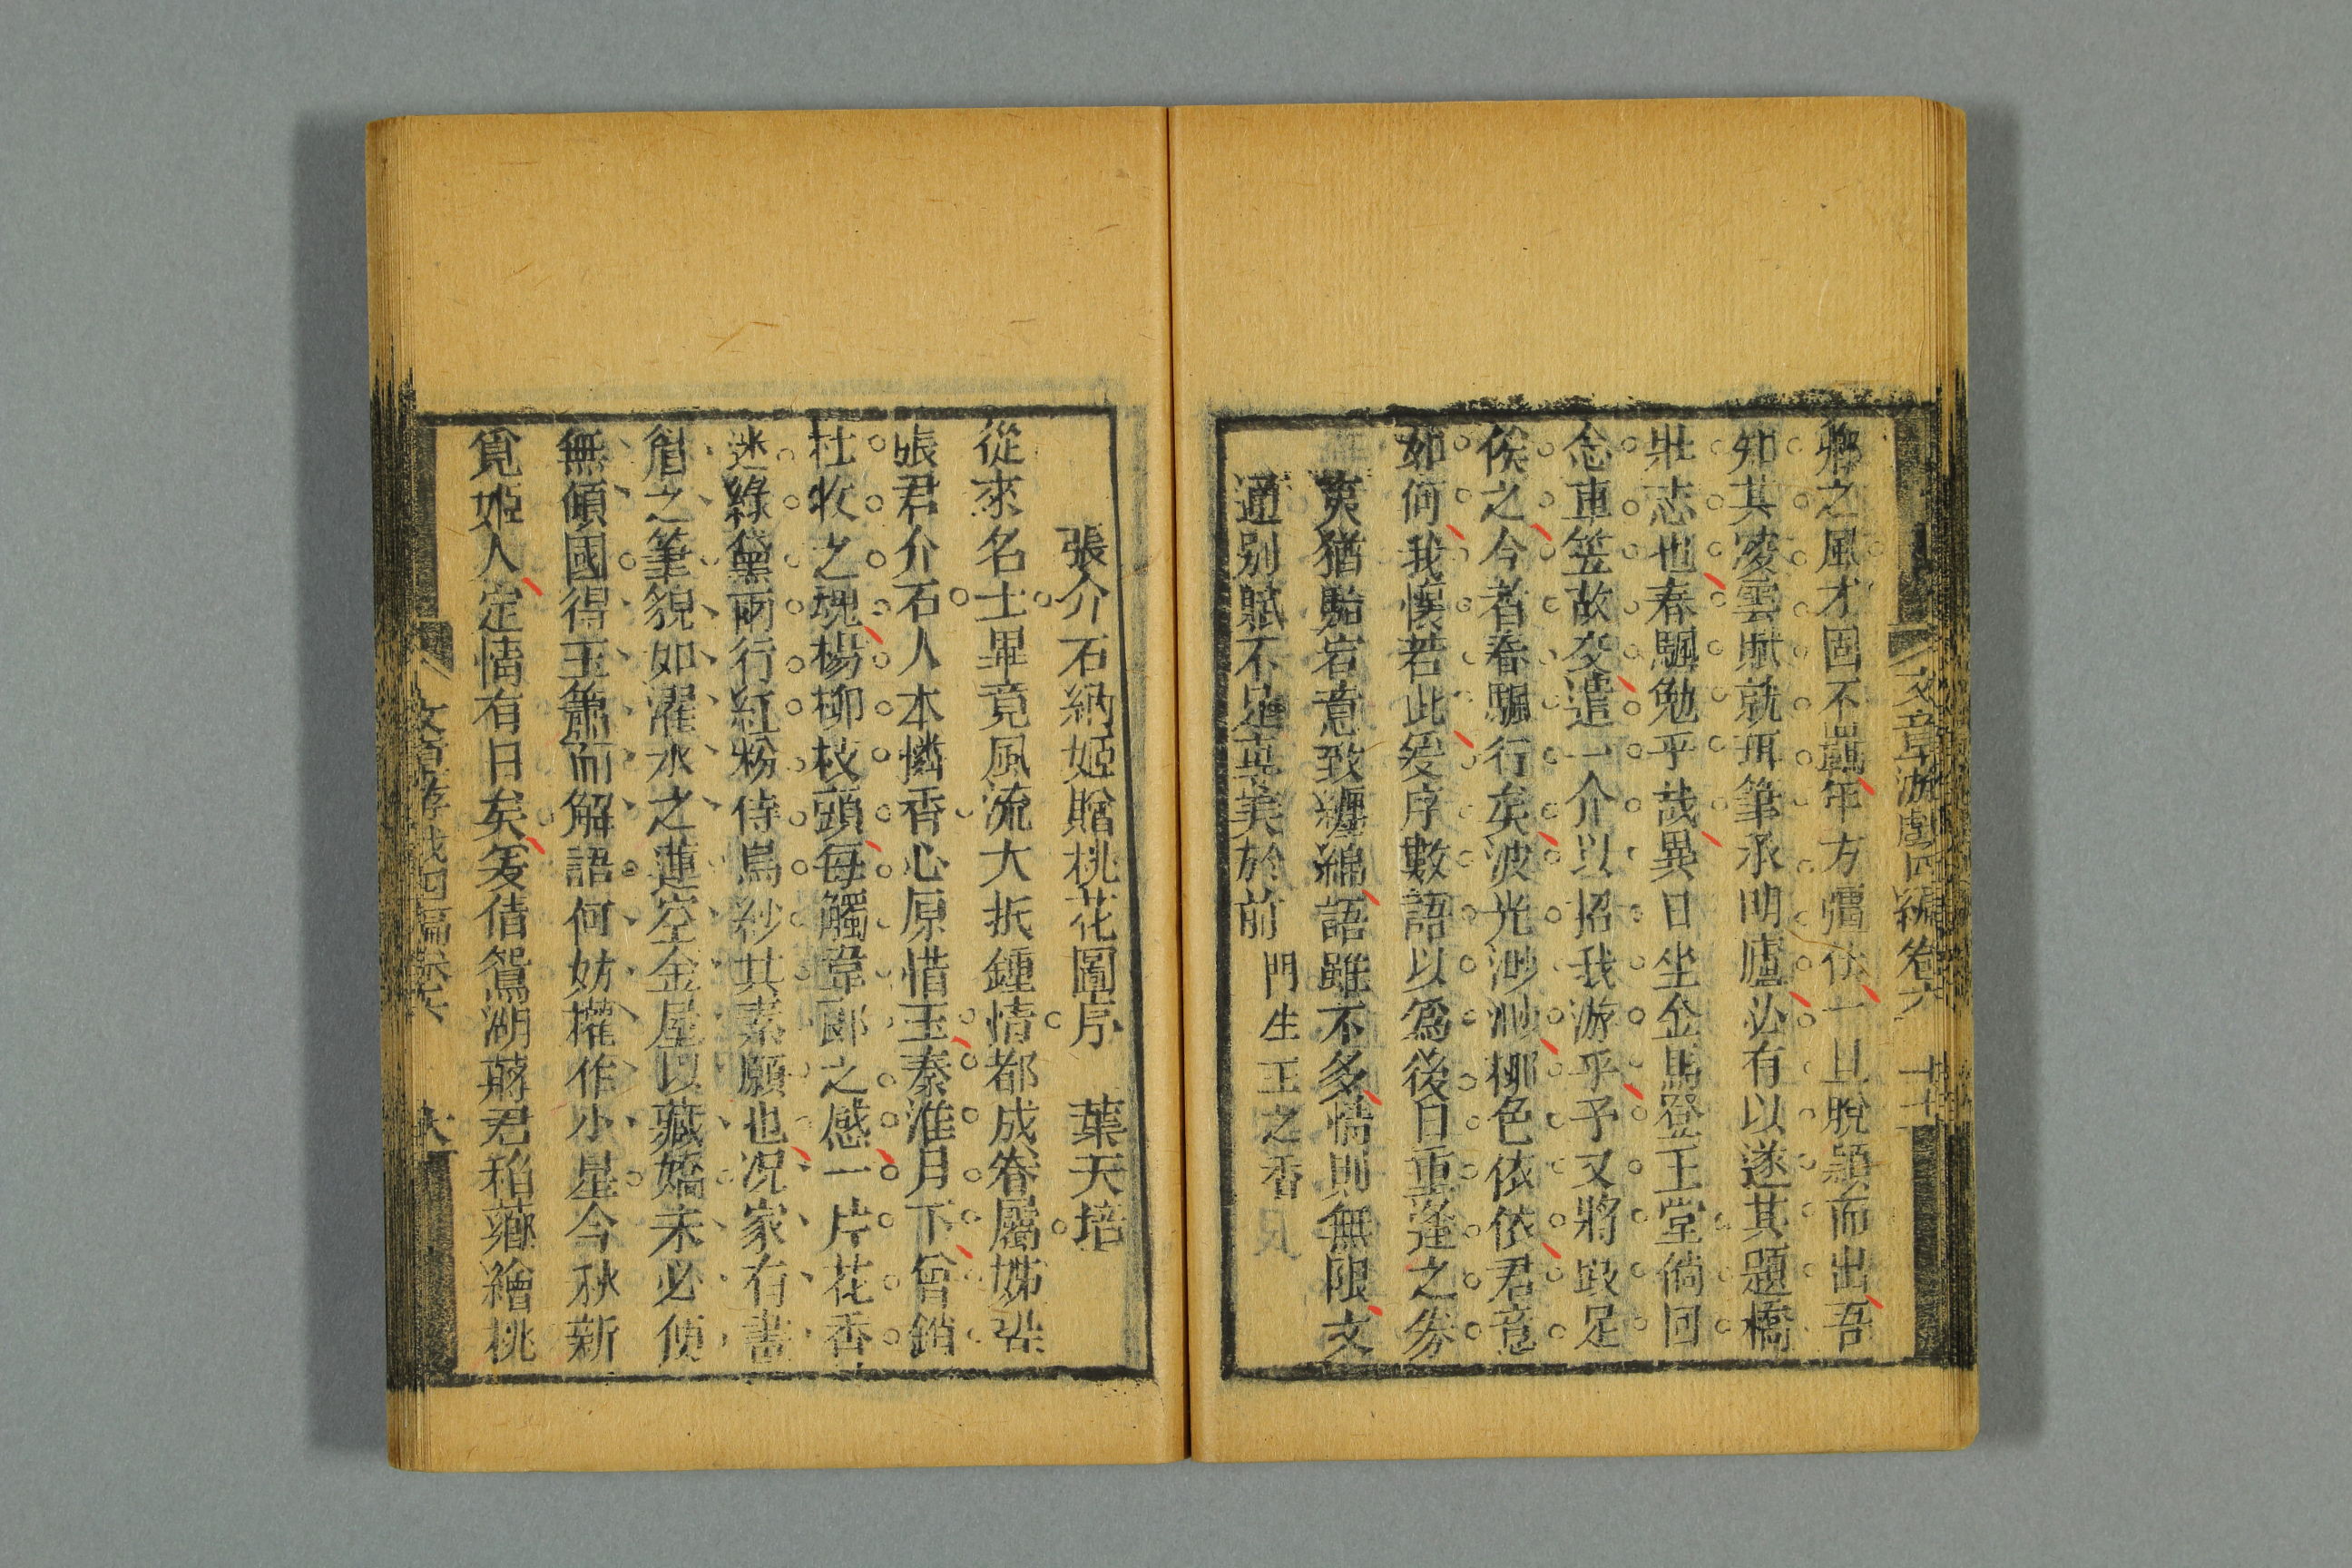 文章游戲四編卷六
卿之風才固不羈年方彊仕一旦脫頴而出吾
知其凌雲賦就珥筆承明廬必有以遂其題橋
壯志也春颿勉乎哉異日坐金馬登玉堂倘回
念車笠故交遣一介以招我游乎予又將跂足
俟之今者春颿行矣波光渺渺柳色依依君意
如何我懷若此爰序數語以爲後日重逢之券
夷猶駘宕意致纏綿語雖不多情則無限文
通别賦不足專美於前門生王之香
張介石納姬贈桃花圖序 葉天培
從來名士畢竟風流大抵鍾情都成眷屬姊
張君介石人本憐香心原惜玉秦淮月下曾銷
杜牧之魂楊柳枝頭每觸韋郎之感一片花香
迷綠黛兩行紅粉侍烏紗其素願也况家有畫
眉之筆貌如濯水之蓮空金屋以藏嬌未必便
無傾國得玉簫而解語何妨權作小星今秋新
覓姬人定情有日矣爰倩鴛湖蔣君稻薌繪桃
文章游戲四編卷六